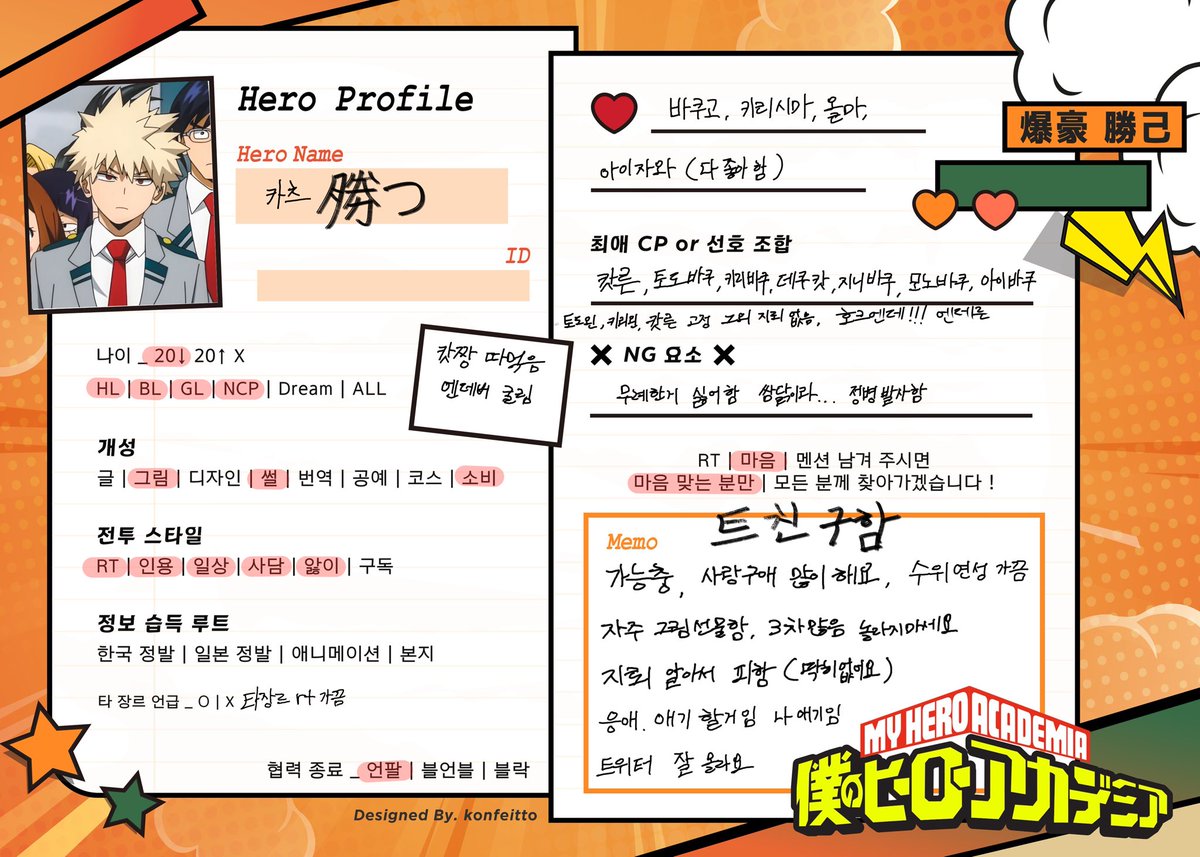 Hero Profile
Hero Name
카츠 勝つ
ID
나이 _ 20↓ 20↑ X
HL | BL | GL | NCP | Dream | ALL
캇짱 따먹음
엔데버 굴림
개성
글 | 그림 | 디자인 | 썰 | 번역 | 공예 | 코스 | 소비
전투 스타일
RT | 인용 | 일상 | 사담 | 앓이 | 구독
정보 습득 루트
한국 정발 | 일본 정발 | 애니메이션 | 본지
타 장르 언급 _ O | X 타장르 가끔
협력 종료 _ 언팔 | 블언블 | 블락
Designed By. konfeitto
바쿠고, 키리시마, 올마,
아이자와 (다 좋아함)
최애 CP or 선호 조합
캇른, 토도바쿠, 키리바쿠, 데쿠캇, 지니바쿠, 모노바쿠, 아이바쿠
토도른, 키리른, 캇른 고정 그외 지뢰 없음, 호크엔데!!! 엔데른
NG 요소
무례한거 싫어함 쌈닭이라... 정병발사함
RT | 마음 | 멘션 남겨 주시면
마음 맞는 분만 | 모든 분께 찾아가겠습니다 !
트친 구함
Memo
가능충, 사랑구애 많이 해요, 수위연성 가끔
자주 그림선물함, 3차많음 놀라지마세요
지뢰 알아서 피함 (딱히없어요)
응애. 애기 할거임 나 애기임
트위터 잘 몰라요
爆豪 勝己
MY HERO ACADEMIA
僕のヒーローアカデミア